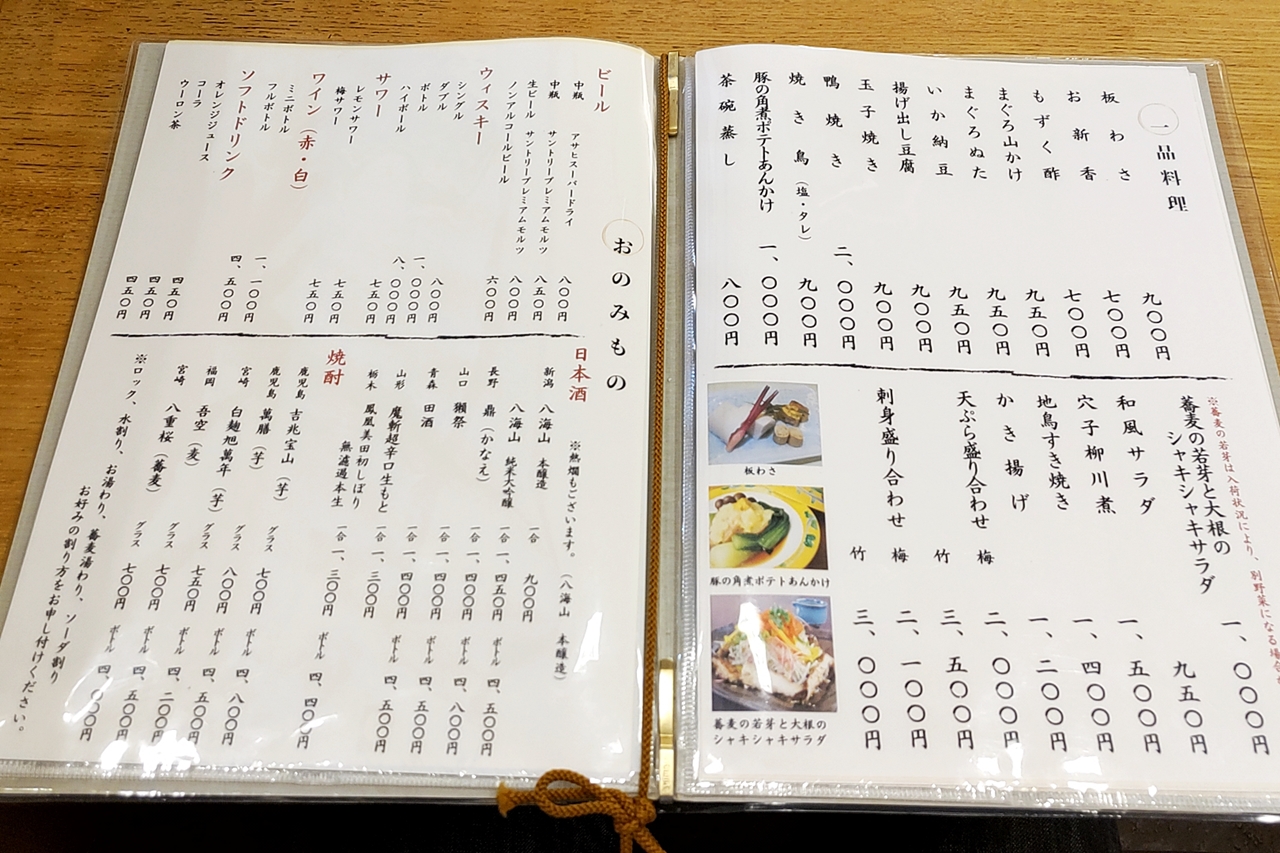 一品料理
板わさ 九〇〇円
お新香 七〇〇円
もずく酢 七〇〇円
まぐろ山かけ 九五〇円
まぐろぬた 九五〇円
いか納豆 九五〇円
揚げ出し豆腐 九〇〇円
玉子焼き 九〇〇円
鴨焼き 二、〇〇〇円
焼き鳥（塩・タレ） 九〇〇円
豚の角煮ポテトあんかけ 一、〇〇〇円
茶碗蒸し 八〇〇円
※蕎麦の若芽は入荷状況により、別野菜になる場合
蕎麦の若芽と大根の
シャキシャキサラダ 一、〇〇〇円
和風サラダ 九五〇円
穴子柳川煮 一、五〇〇円
地鳥すき焼き 一、四〇〇円
かき揚げ 一、二〇〇円
天ぷら盛り合わせ 梅 二、〇〇〇円
竹 三、五〇〇円
刺身盛り合わせ 梅 二、一〇〇円
竹 三、〇〇〇円
板わさ
豚の角煮ポテトあんかけ
蕎麦の若芽と大根の
シャキシャキサラダ
おのみもの
ビール
中瓶 アサヒスーパードライ 八〇〇円
中瓶 サントリープレミアムモルツ 八五〇円
生ビール サントリープレミアムモルツ 八〇〇円
ノンアルコールビール 六〇〇円
ウィスキー
シングル 八〇〇円
ダブル 一、〇〇〇円
ボトル 八、〇〇〇円
ハイボール 七五〇円
サワー
レモンサワー 七五〇円
梅サワー 七五〇円
ワイン（赤・白）
ミニボトル 一、一〇〇円
フルボトル 四、五〇〇円
ソフトドリンク
オレンジジュース 四五〇円
コーラ 四五〇円
ウーロン茶 四五〇円
日本酒
※熱燗もございます。（八海山 本醸造）
新潟 八海山 本醸造 一合 九〇〇円
八海山 純米大吟醸 一合 一、四五〇円 ボトル 四、五〇〇円
長野 鼎（かなえ） 一合 一、四〇〇円 ボトル 四、八〇〇円
山口 獺祭 一合 一、四〇〇円 ボトル 四、五〇〇円
青森 田酒 一合 一、四〇〇円 ボトル 四、五〇〇円
山形 魔斬超辛口生もと 一合 一、三〇〇円
栃木 鳳凰美田初しぼり
無濾過本生 一合 一、三〇〇円 ボトル 四、四〇〇円
焼酎
鹿児島 吉兆宝山（芋） グラス 七〇〇円 ボトル 四、八〇〇円
鹿児島 萬膳（芋） グラス 八〇〇円 ボトル 四、五〇〇円
宮崎 白麹旭萬年（芋） グラス 七五〇円 ボトル 四、二〇〇円
福岡 吾空（麦） グラス 七〇〇円 ボトル 四、五〇〇円
宮崎 八重桜（蕎麦） グラス 七〇〇円 ボトル 四、〇〇〇円
※ロック、水割り、お湯わり、蕎麦湯わり、ソーダ割り
お好みの割り方をお申し付けください。